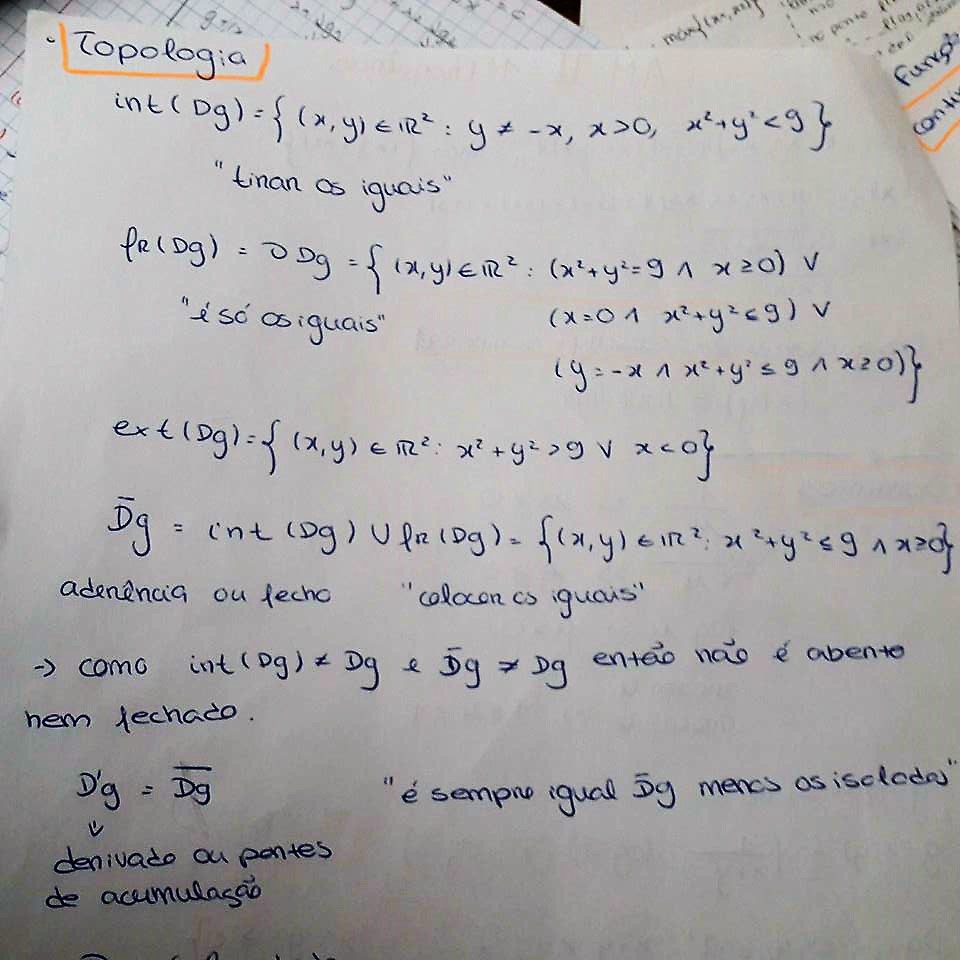 Topologia
int(Dg) = {(x,y) ∈ ℝ² : y ≠ -x, x>0, x²+y² < 9}
"tirar os iguais"
fr(Dg) = ∂Dg = {(x,y) ∈ ℝ² : (x²+y²=9 ∧ x≥0) ∨
"é só os iguais" (x=0 ∧ x²+y² ≤ 9) ∨
(y=-x ∧ x²+y² ≤ 9 ∧ x≥0)}
ext(Dg) = {(x,y) ∈ ℝ² : x²+y² > 9 ∨ x<0}
D̄g = int(Dg) ∪ fr(Dg) = {(x,y) ∈ ℝ² : x²+y² ≤ 9 ∧ x≥0}
aderência ou fecho "colocar os iguais"
→ como int(Dg) ≠ Dg e D̄g ≠ Dg então não é aberto
nem fechado.
D'g = D̄g "é sempre igual D̄g menos os isolados"
derivado ou pontos
de acumulação